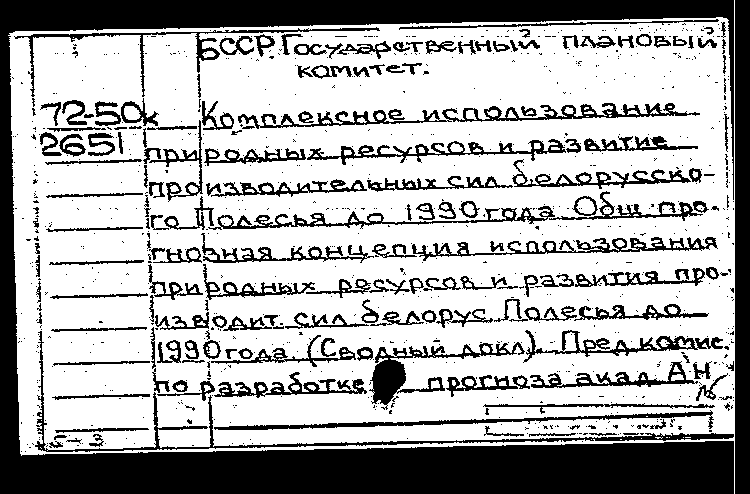 БССР. Государственный плановый
комитет.
72-50к Комплексное использование
2651 природных ресурсов и развитие
производительных сил белорусско-
го Полесья до 1990 года. Общ. про-
гнозная концепция использования
природных ресурсов и развития про-
изводит. сил белорус. Полесья до
1990 года. (Сводный докл). Пред. комис.
по разработке прогноза акад. АН